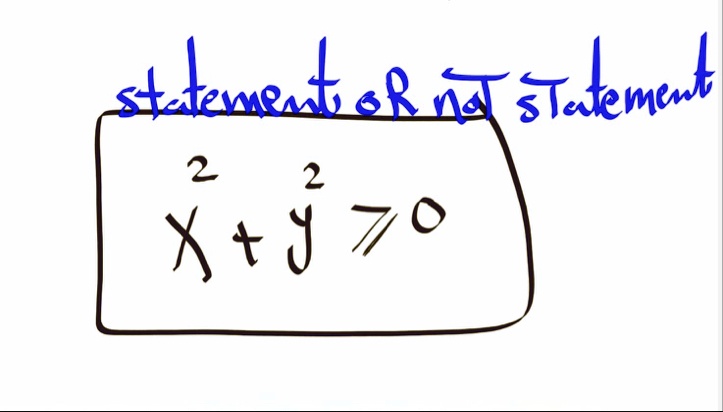 statement oR noT sTatement
x² + y² ⩾ 0